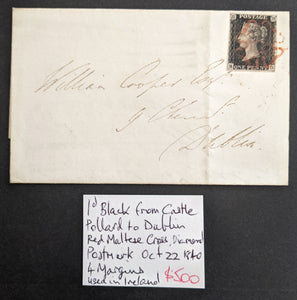 POSTAGE
ONE PENNY
William Cooper Esqr
Dublin
1d Black from Castle
Pollard to Dublin
Red Maltese Cross, Diamond
Postmark Oct 22 1840
4 Margins
used in Ireland $500